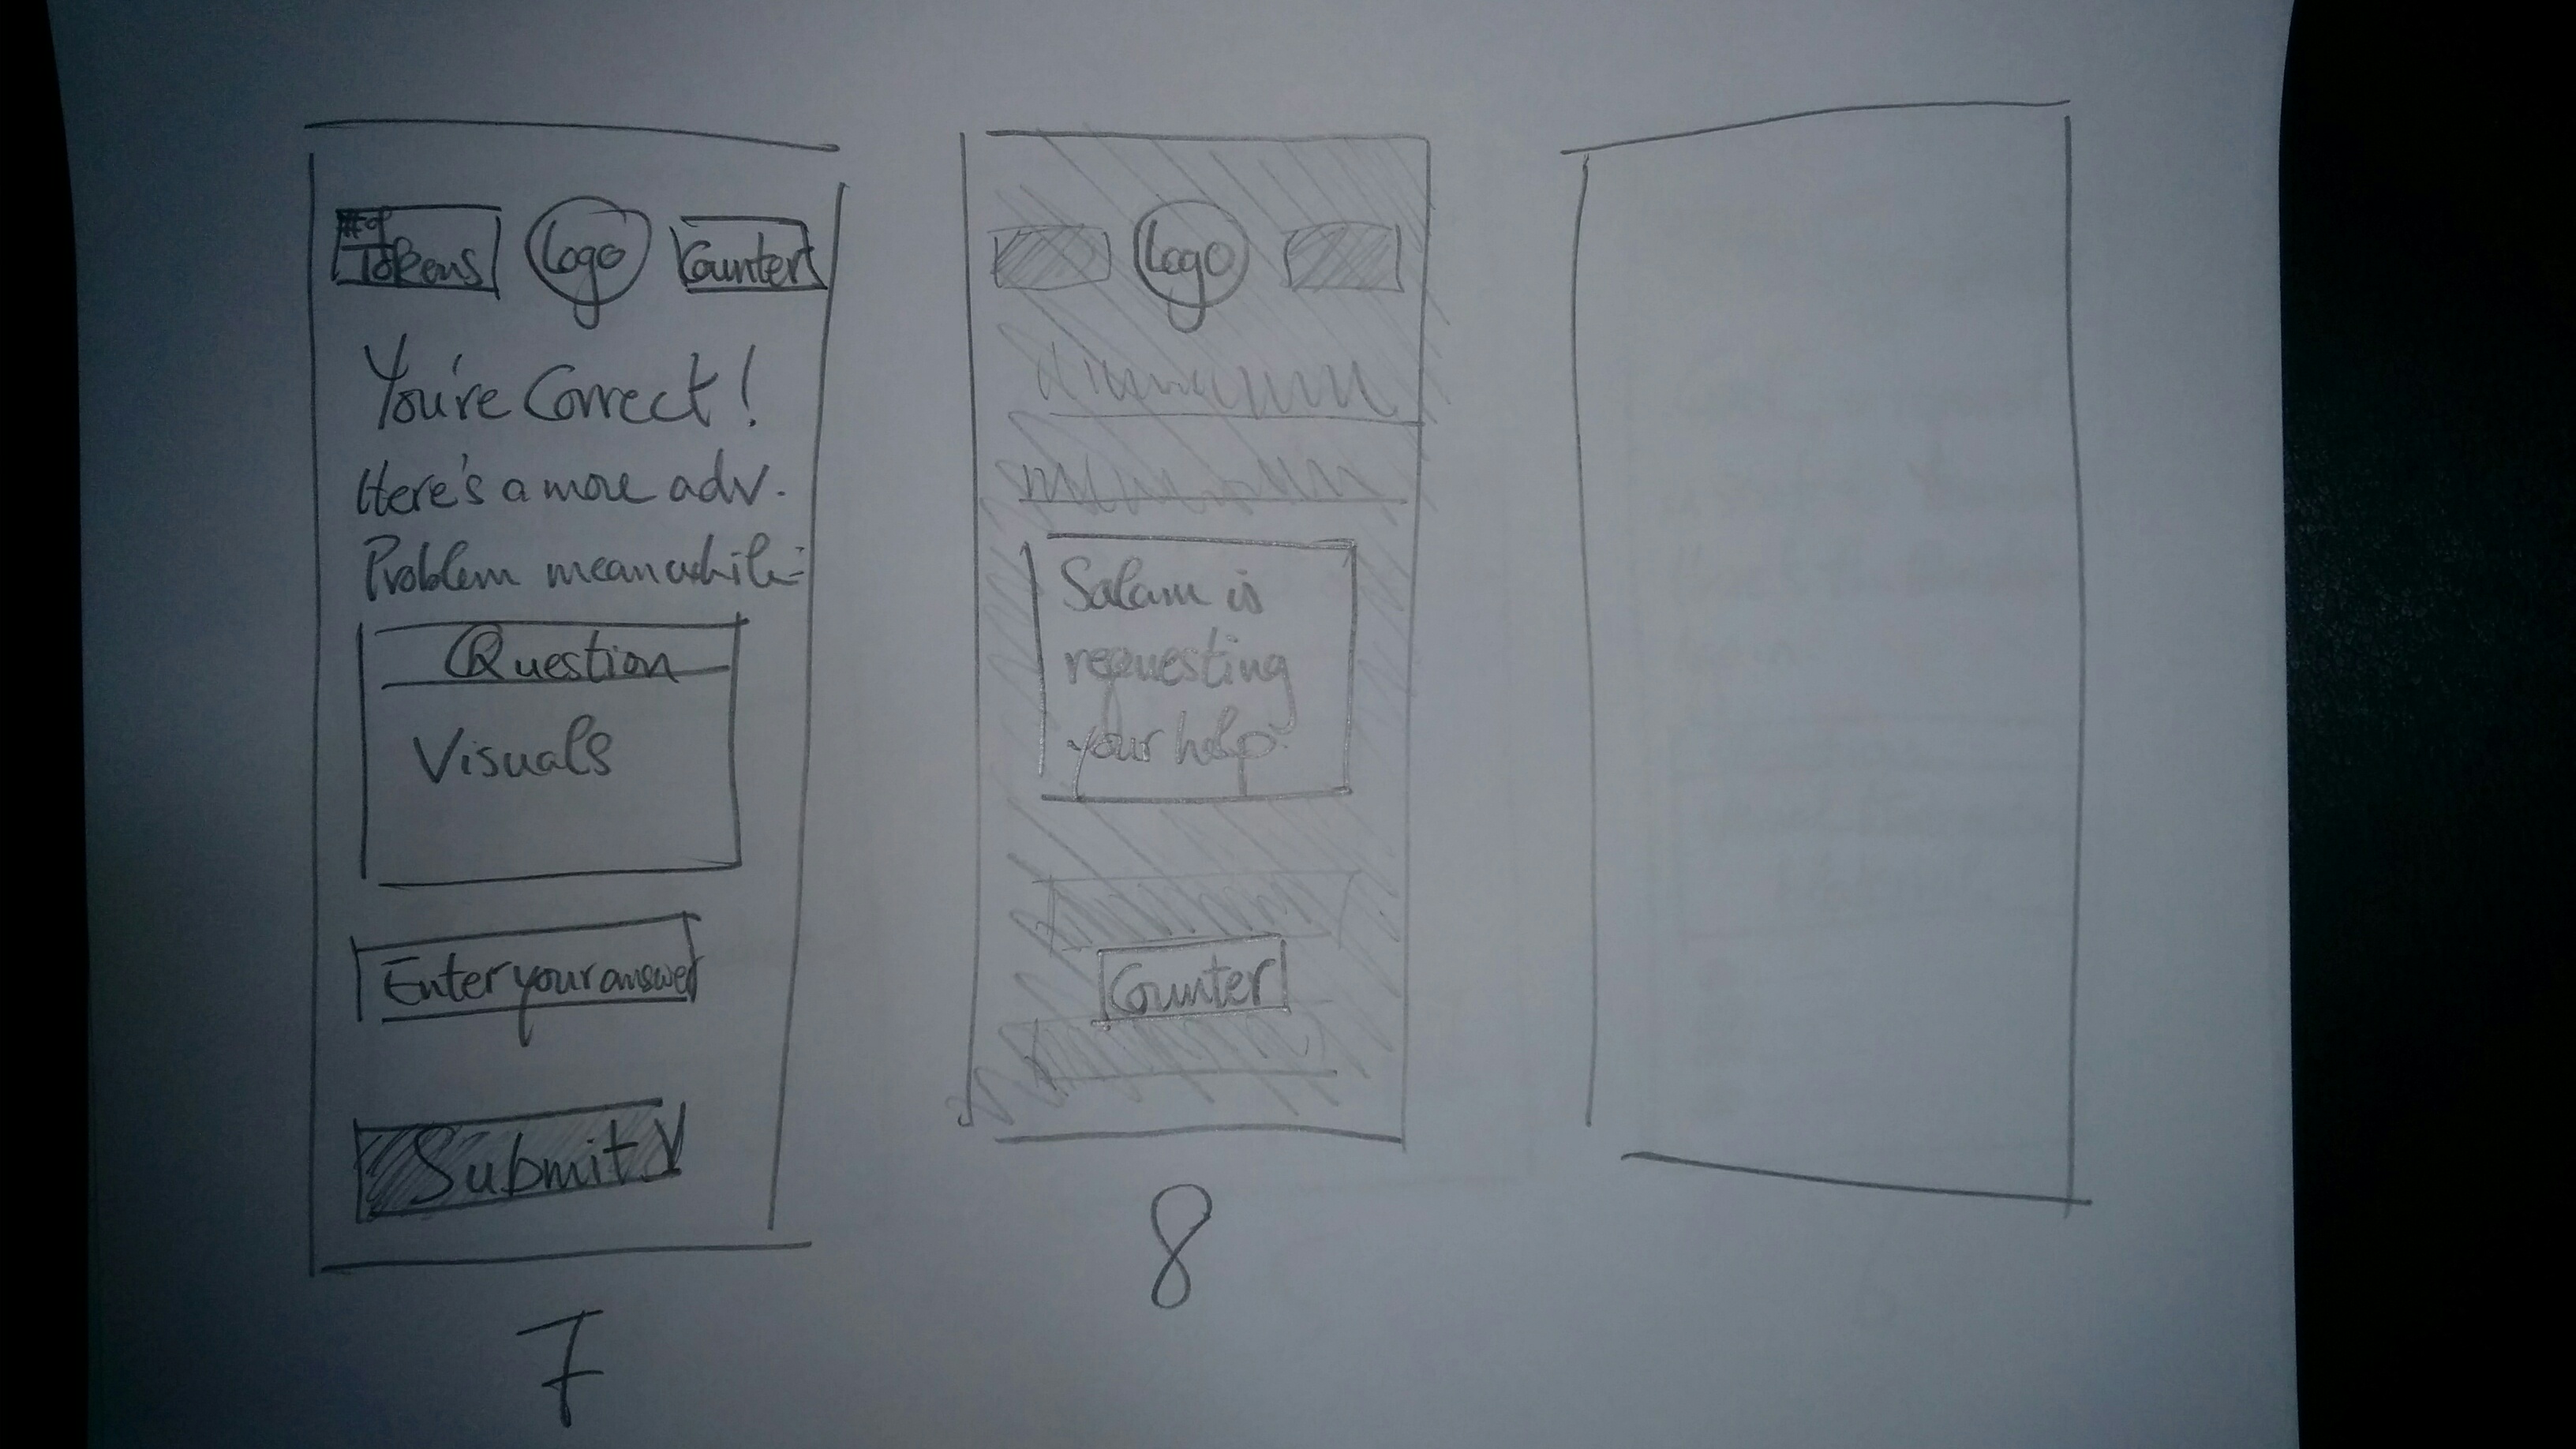 # of
Tokens
Logo
Counter
You're Correct!
Here's a more adv.
Problem meanwhile:
Question
Visuals
Enter your answer
Submit
7
Logo
Salam is
requesting
your help.
Counter
8